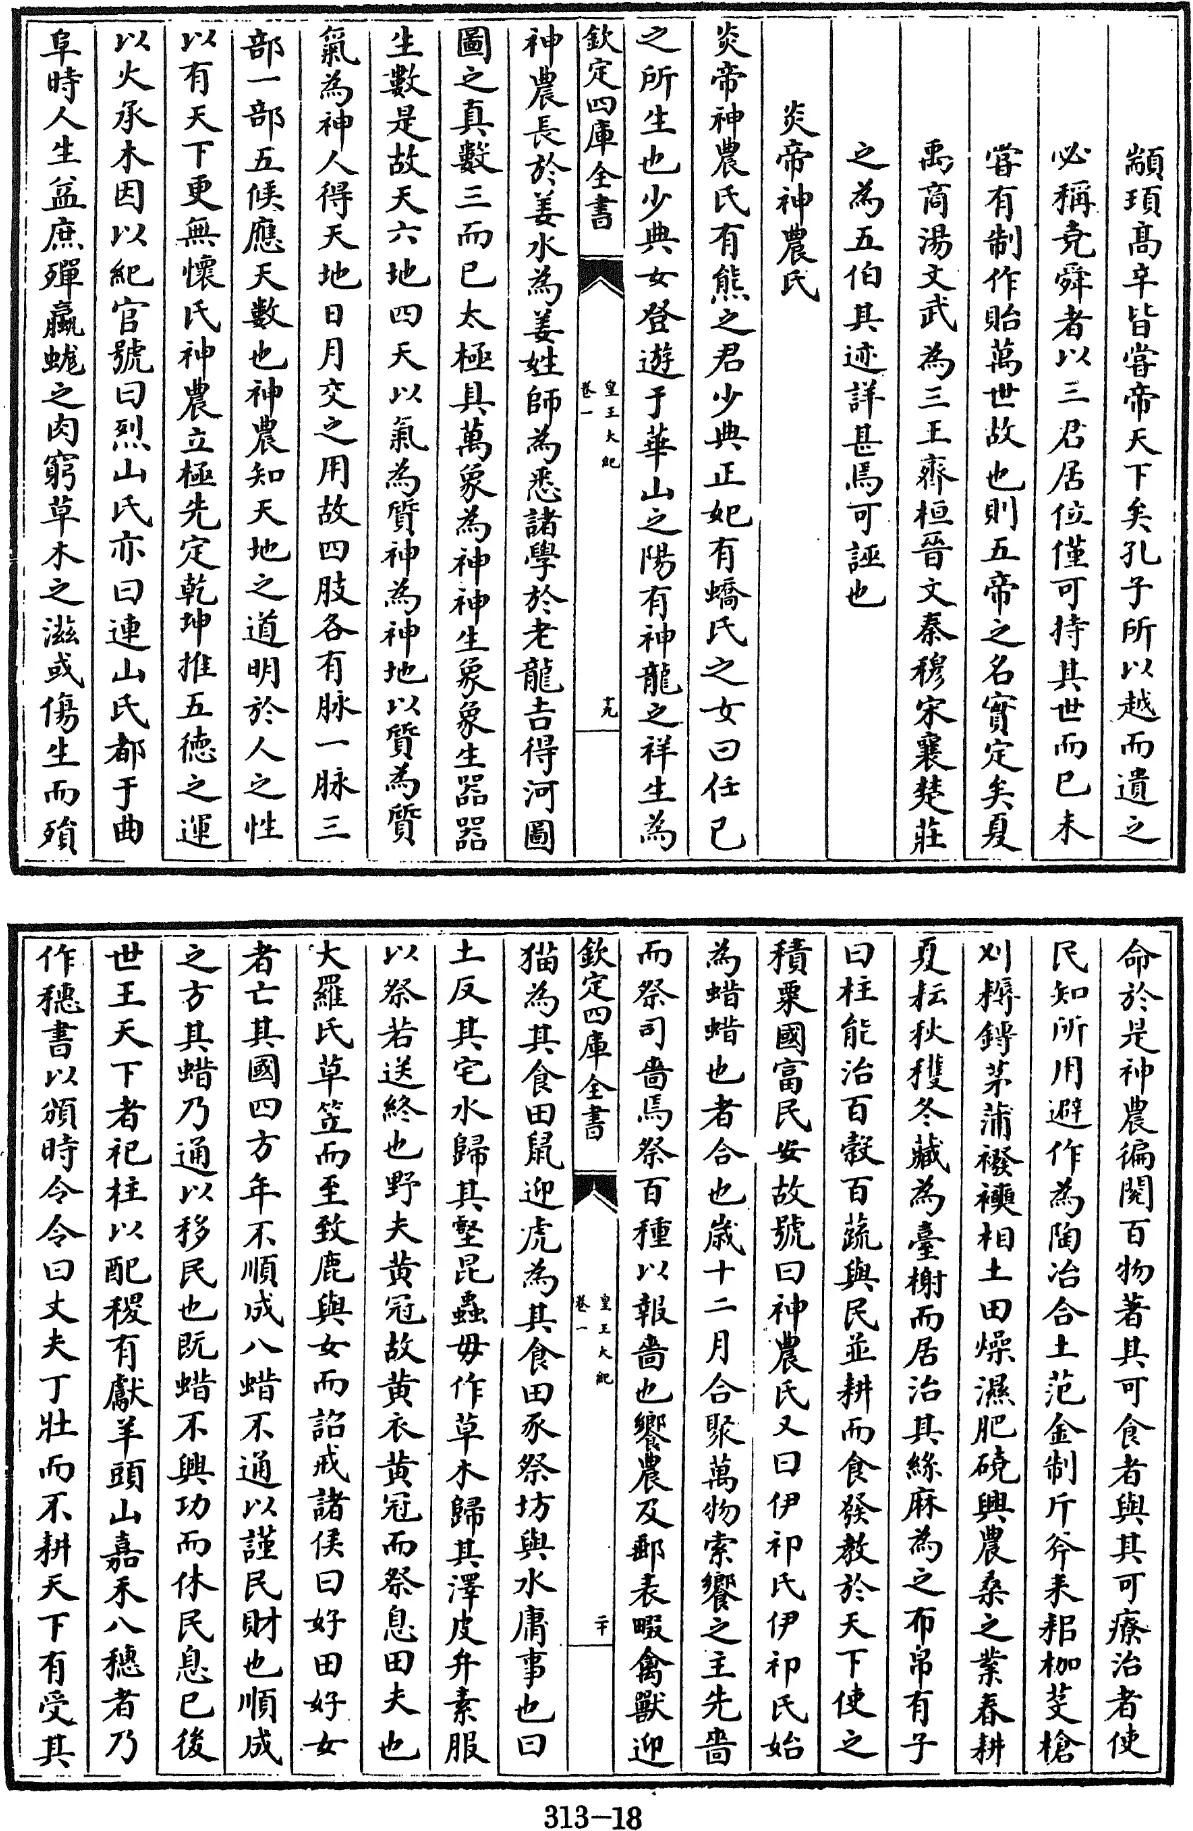 顓頊高辛皆嘗帝天下矣孔子所以越而遺之
必稱堯舜者以三君居位僅可持其世而已未
嘗有制作貽萬世故也則五帝之名實定矣夏
禹商湯文武為三王齊桓晉文秦穆宋襄楚莊
之為五伯其迹詳甚焉可誣也
炎帝神農氏
炎帝神農氏有熊之君少典正妃有蟜氏之女曰任已
之所生也少典女登遊于華山之陽有神龍之祥生為
欽定四庫全書
皇王大紀
卷一
十九
神農長於姜水為姜姓師為悉諸學於老龍吉得河圖
圖之真數三而已太極具萬象為神神生象象生器器
生數是故天六地四天以氣為質神為神地以質為質
氣為神人得天地日月交之用故四肢各有脉一脉三
部一部五候應天數也神農知天地之道明於人之性
以有天下更無懷氏神農立極先定乾坤推五德之運
以火承木因以紀官號曰烈山氏亦曰連山氏都于曲
阜時人生益庶殫蠃蛖之肉窮草木之滋或傷生而殞
命於是神農徧閱百物著其可食者與其可療治者使
民知所用避作為陶冶合土范金制斤斧耒耜枷芟槍
刈耨鎛茅蒲襏襫相土田燥濕肥磽興農桑之業春耕
夏耘秋穫冬藏為臺榭而居治其絲麻為之布帛有子
曰柱能治百穀百蔬與民並耕而食發教於天下使之
積粟國富民安故號曰神農氏又曰伊祁氏伊祁氏始
為蜡蜡也者合也歲十二月合聚萬物索饗之主先嗇
而祭司嗇焉祭百種以報嗇也饗農及郵表畷禽獸迎
欽定四庫全書
皇王大紀
卷一
二十
猫為其食田鼠迎虎為其食田豕祭坊與水庸事也曰
土反其宅水歸其壑昆蟲毋作草木歸其澤皮弁素服
以祭若送終也野夫黄冠故黄衣黄冠而祭息田夫也
大羅氏草笠而至致鹿與女而詔戒諸侯曰好田好女
者亡其國四方年不順成八蜡不通以謹民財也順成
之方其蜡乃通以移民也既蜡不興功而休民息已後
世王天下者祀柱以配稷有獻羊頭山嘉禾八穗者乃
作穗書以頒時令令曰丈夫丁壯而不耕天下有受其
313-18